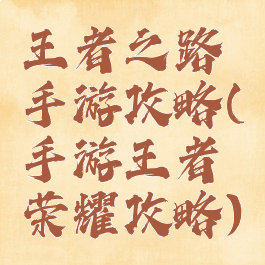 王者之路
手游攻略(
手游王者
荣耀攻略)